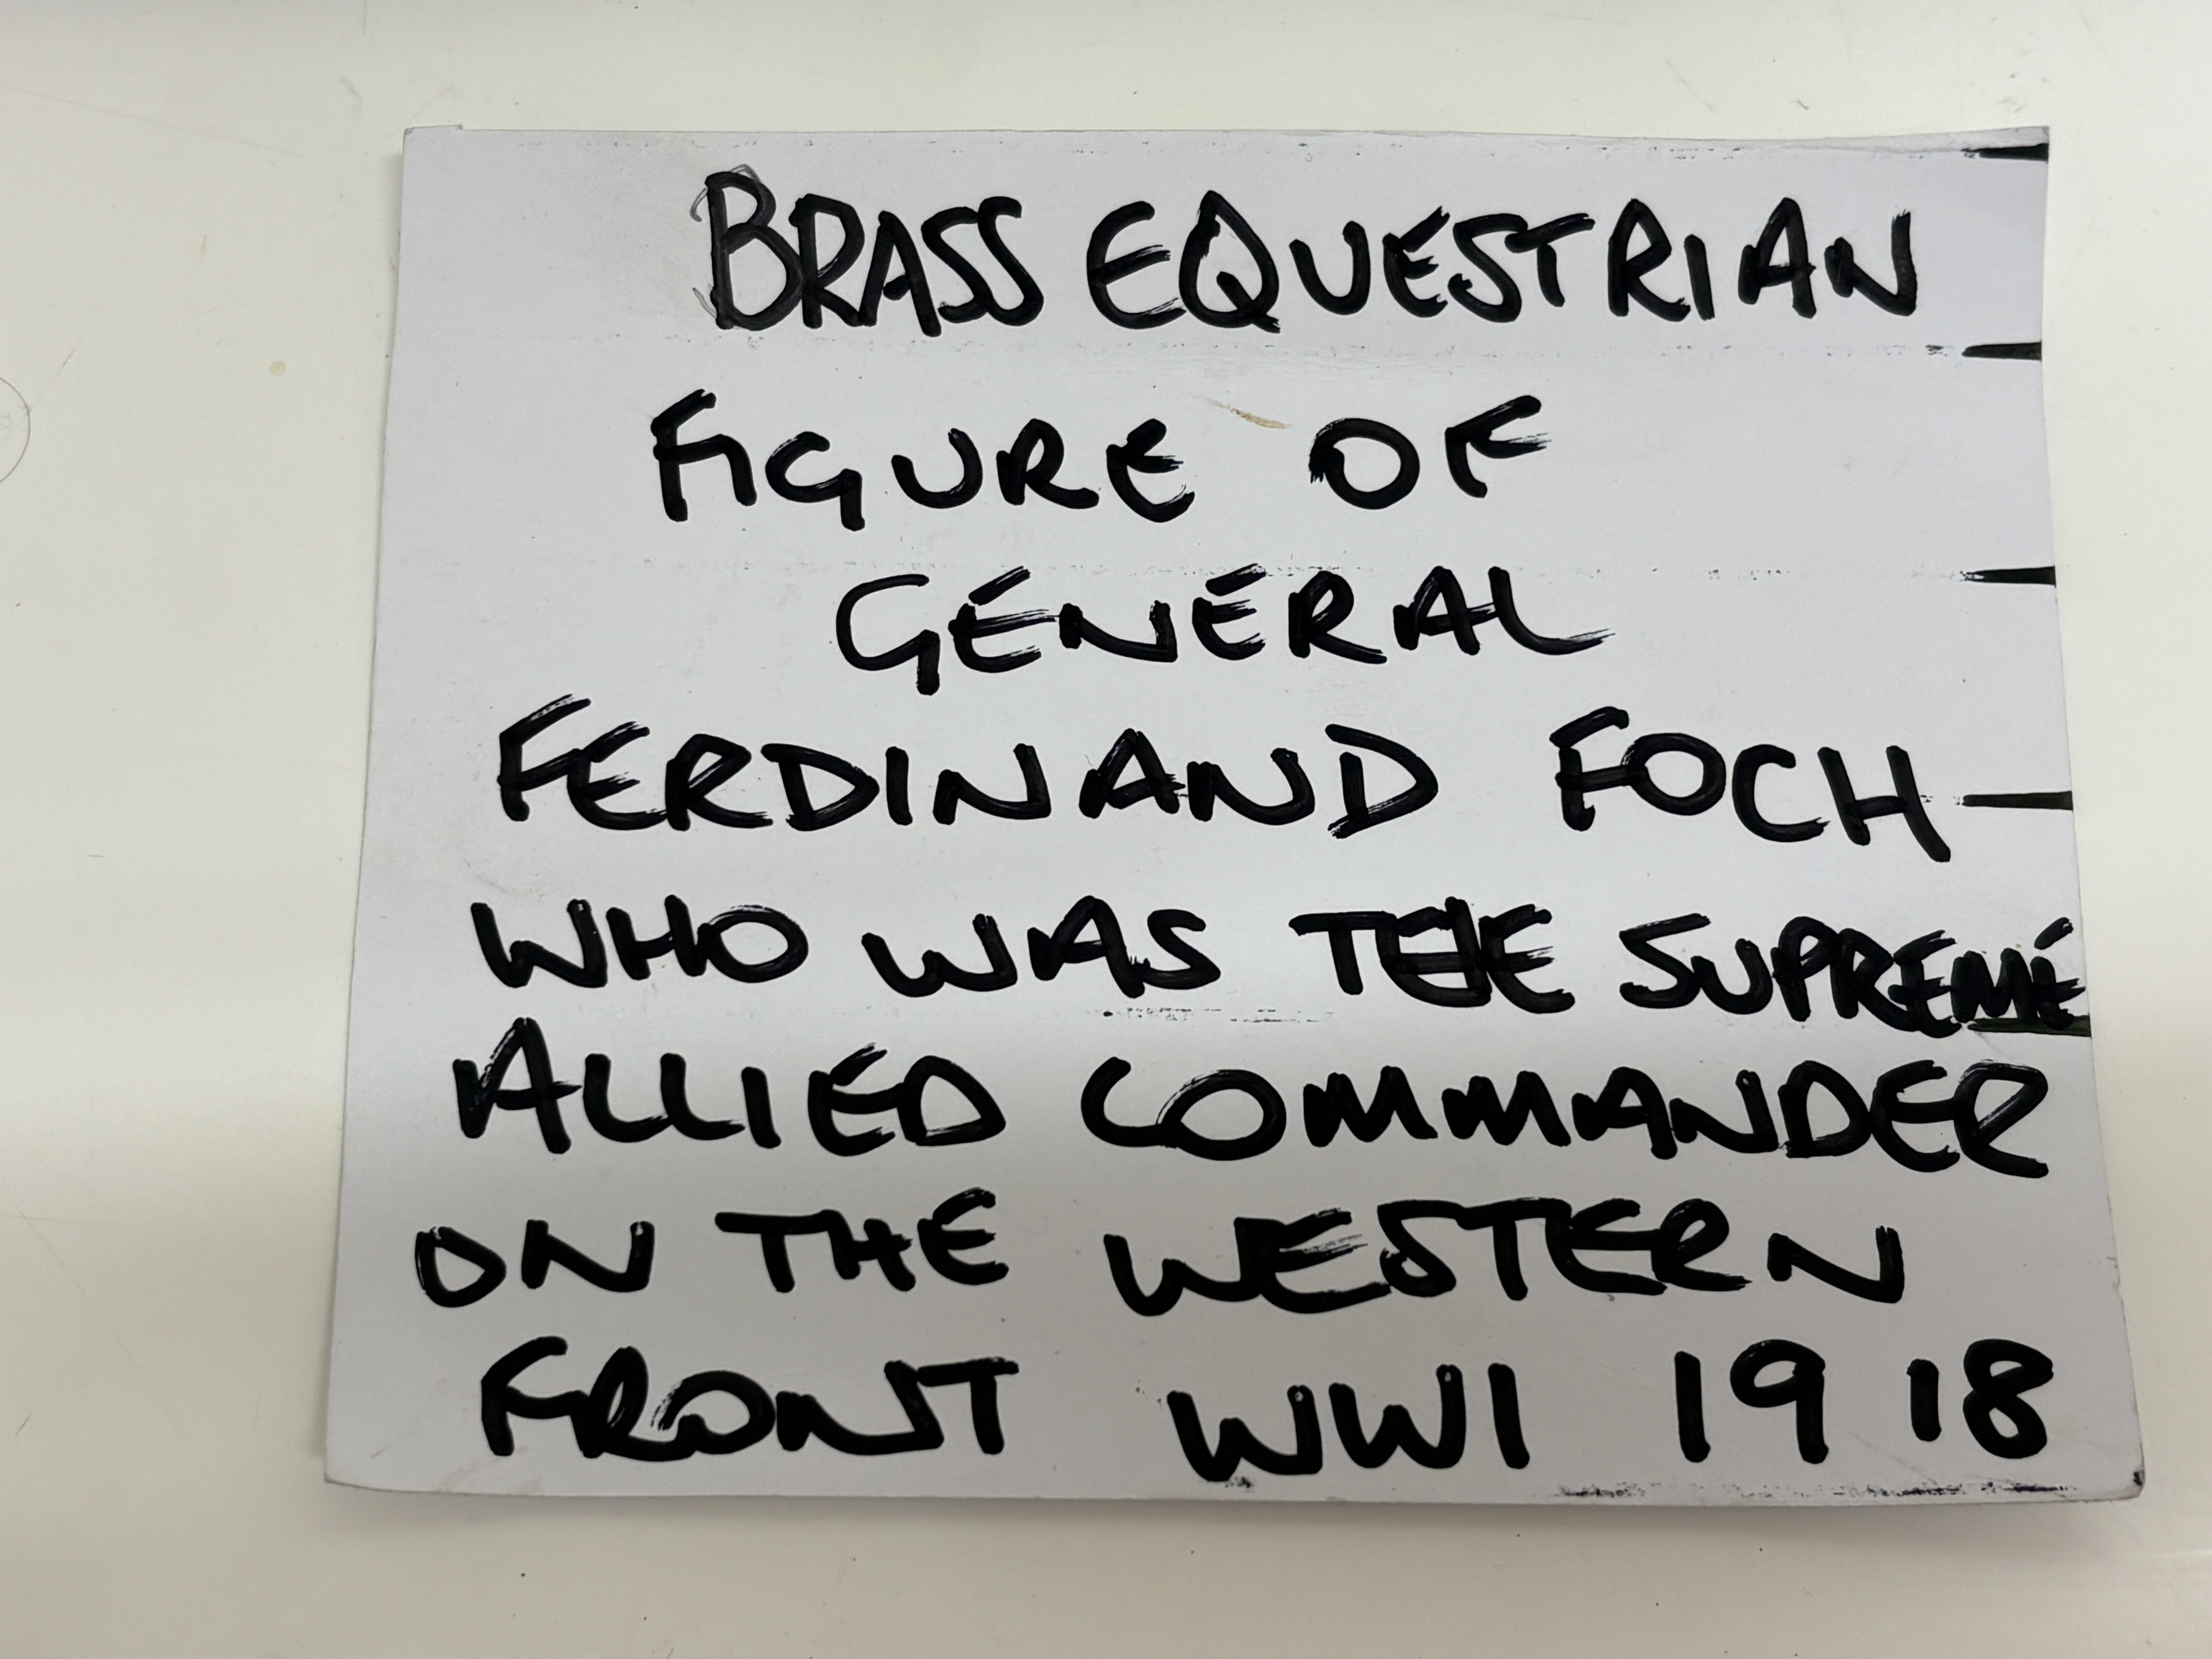 BRASS EQUESTRIAN
FIGURE OF
GENERAL
FERDINAND FOCH-
WHO WAS THE SUPREME
ALLIED COMMANDER
ON THE WESTERN
FRONT WWI 1918